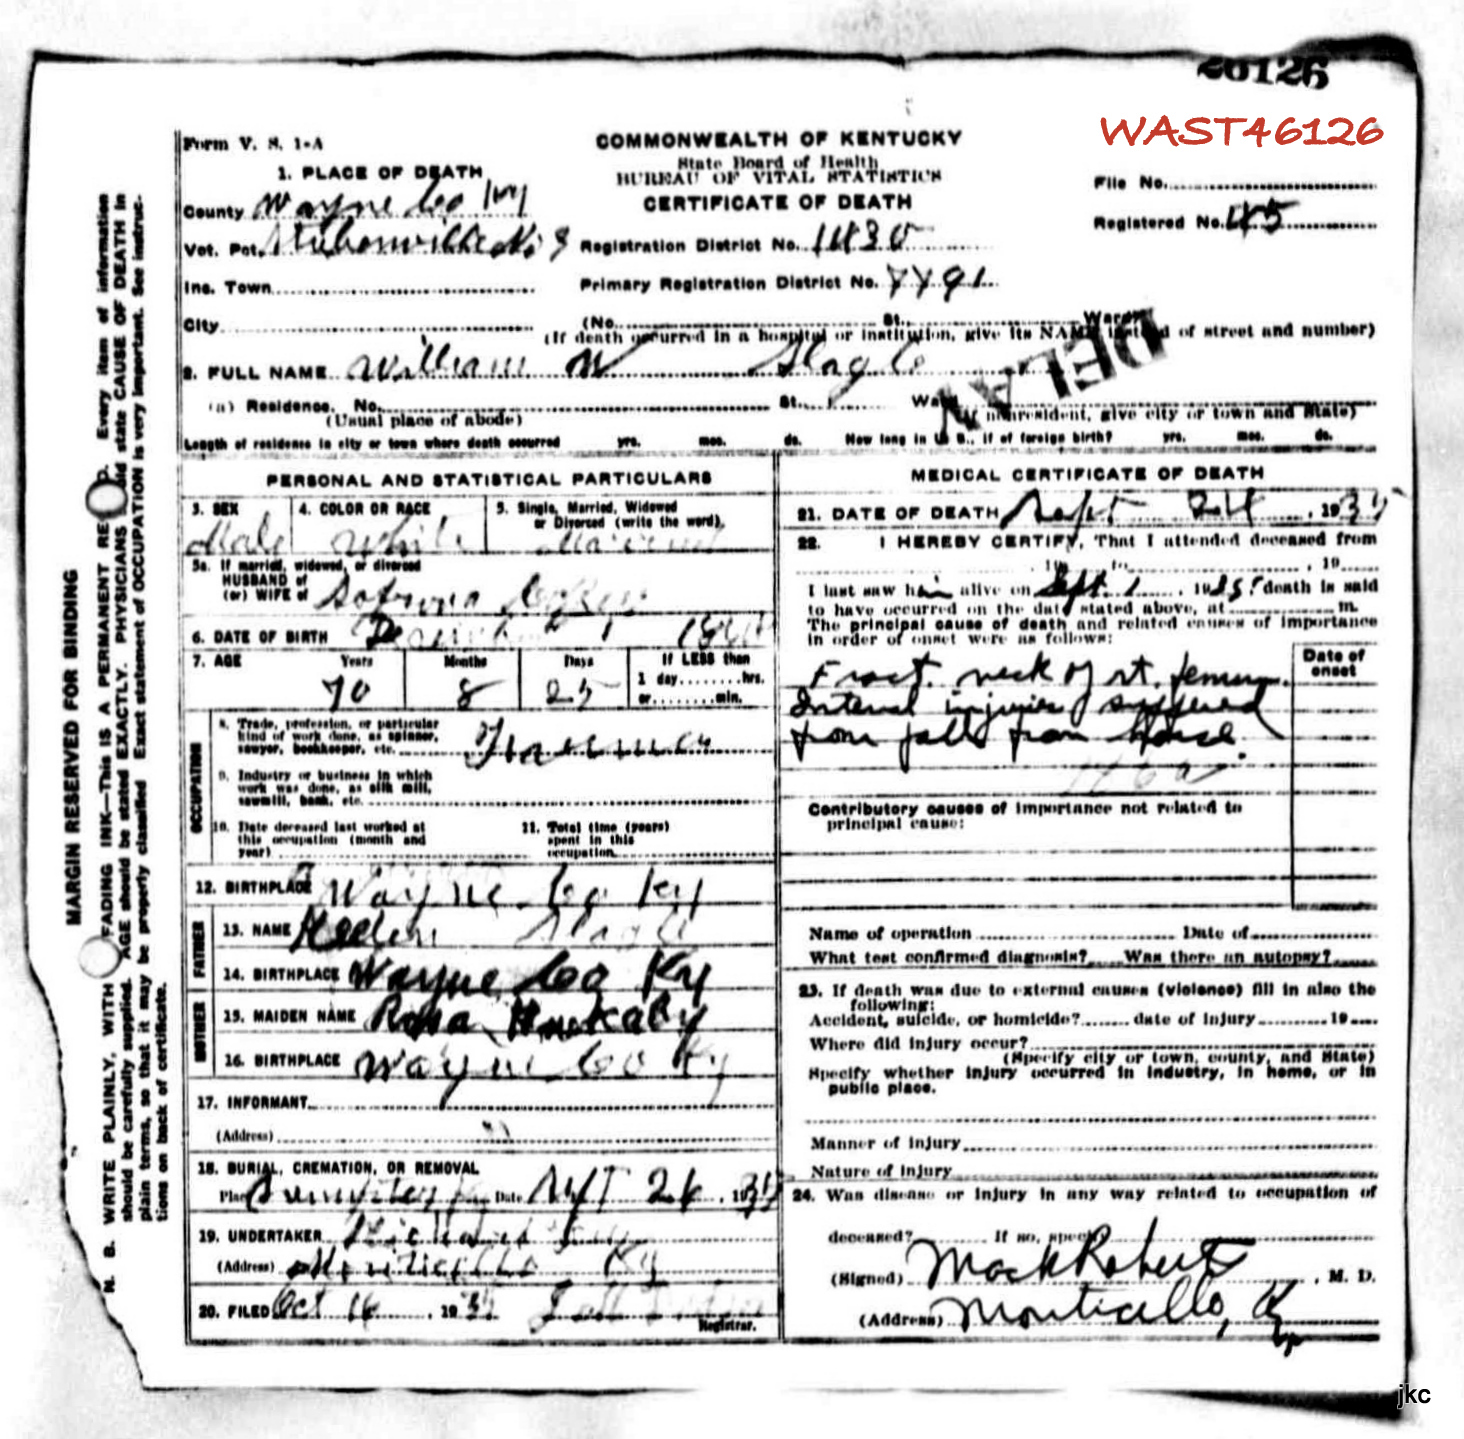 26126
WAST46126
Form V. S. 1-A
COMMONWEALTH OF KENTUCKY
State Board of Health
BUREAU OF VITAL STATISTICS
CERTIFICATE OF DEATH
File No.
Registered No. 45
1. PLACE OF DEATH
County Wayne Co Ky
Vot. Pct. No 8
Registration District No. 1430
Inc. Town
Primary Registration District No. 7791
City
(No. St. Ward)
(If death occurred in a hospital or institution, give its NAME instead of street and number)
DELAY
2. FULL NAME William W Slagle
(a) Residence. No. St., Ward
(Usual place of abode)
(If nonresident, give city or town and State)
Length of residence in city or town where death occurred yrs. mos. ds. How long in U. S., if of foreign birth? yrs. mos. ds.
PERSONAL AND STATISTICAL PARTICULARS
3. SEX
Male
4. COLOR OR RACE
White
5. Single, Married, Widowed
or Divorced (write the word)
Married
5a. If married, widowed, or divorced
HUSBAND of
(or) WIFE of
6. DATE OF BIRTH
7. AGE Years Months Days
70 8 25
If LESS than
1 day hrs.
or min.
OCCUPATION
8. Trade, profession, or particular
kind of work done, as spinner,
sawyer, bookkeeper, etc. Farmer
9. Industry or business in which
work was done, as silk mill,
sawmill, bank, etc.
10. Date deceased last worked at
this occupation (month and
year)
11. Total time (years)
spent in this
occupation
12. BIRTHPLACE Wayne Co Ky
FATHER
13. NAME Slagle
14. BIRTHPLACE Wayne Co Ky
MOTHER
15. MAIDEN NAME Rosa Huckaby
16. BIRTHPLACE Wayne Co Ky
17. INFORMANT
(Address)
18. BURIAL, CREMATION, OR REMOVAL
Place Date Sept 26, 1935
19. UNDERTAKER
(Address) Monticello Ky
20. FILED Oct 16, 1935
Registrar.
MEDICAL CERTIFICATE OF DEATH
21. DATE OF DEATH Sept 24, 1935
22. I HEREBY CERTIFY, That I attended deceased from
, 19 to , 19
I last saw him alive on Sept 1, 1935; death is said
to have occurred on the date stated above, at m.
The principal cause of death and related causes of importance
in order of onset were as follows:
Date of
onset
Fract. neck of rt. femur.
Internal injuries suffered
from fall from horse.
Contributory causes of importance not related to
principal cause:
Name of operation Date of
What test confirmed diagnosis? Was there an autopsy?
23. If death was due to external causes (violence) fill in also the
following:
Accident, suicide, or homicide? date of injury 19
Where did injury occur?
(Specify city or town, county, and State)
Specify whether injury occurred in industry, in home, or in
public place.
Manner of injury
Nature of injury
24. Was disease or injury in any way related to occupation of
deceased? If so, specify
(Signed) Mack Roberts, M. D.
(Address) Monticello, Ky
MARGIN RESERVED FOR BINDING
N. B. WRITE PLAINLY, WITH FADING INK—THIS IS A PERMANENT Every item of information
should be carefully supplied. AGE should be stated EXACTLY. PHYSICIANS state CAUSE OF DEATH in
plain terms, so that it may be properly classified Exact statement of OCCUPATION is very important. See instruc-
tions on back of certificate.
jkc